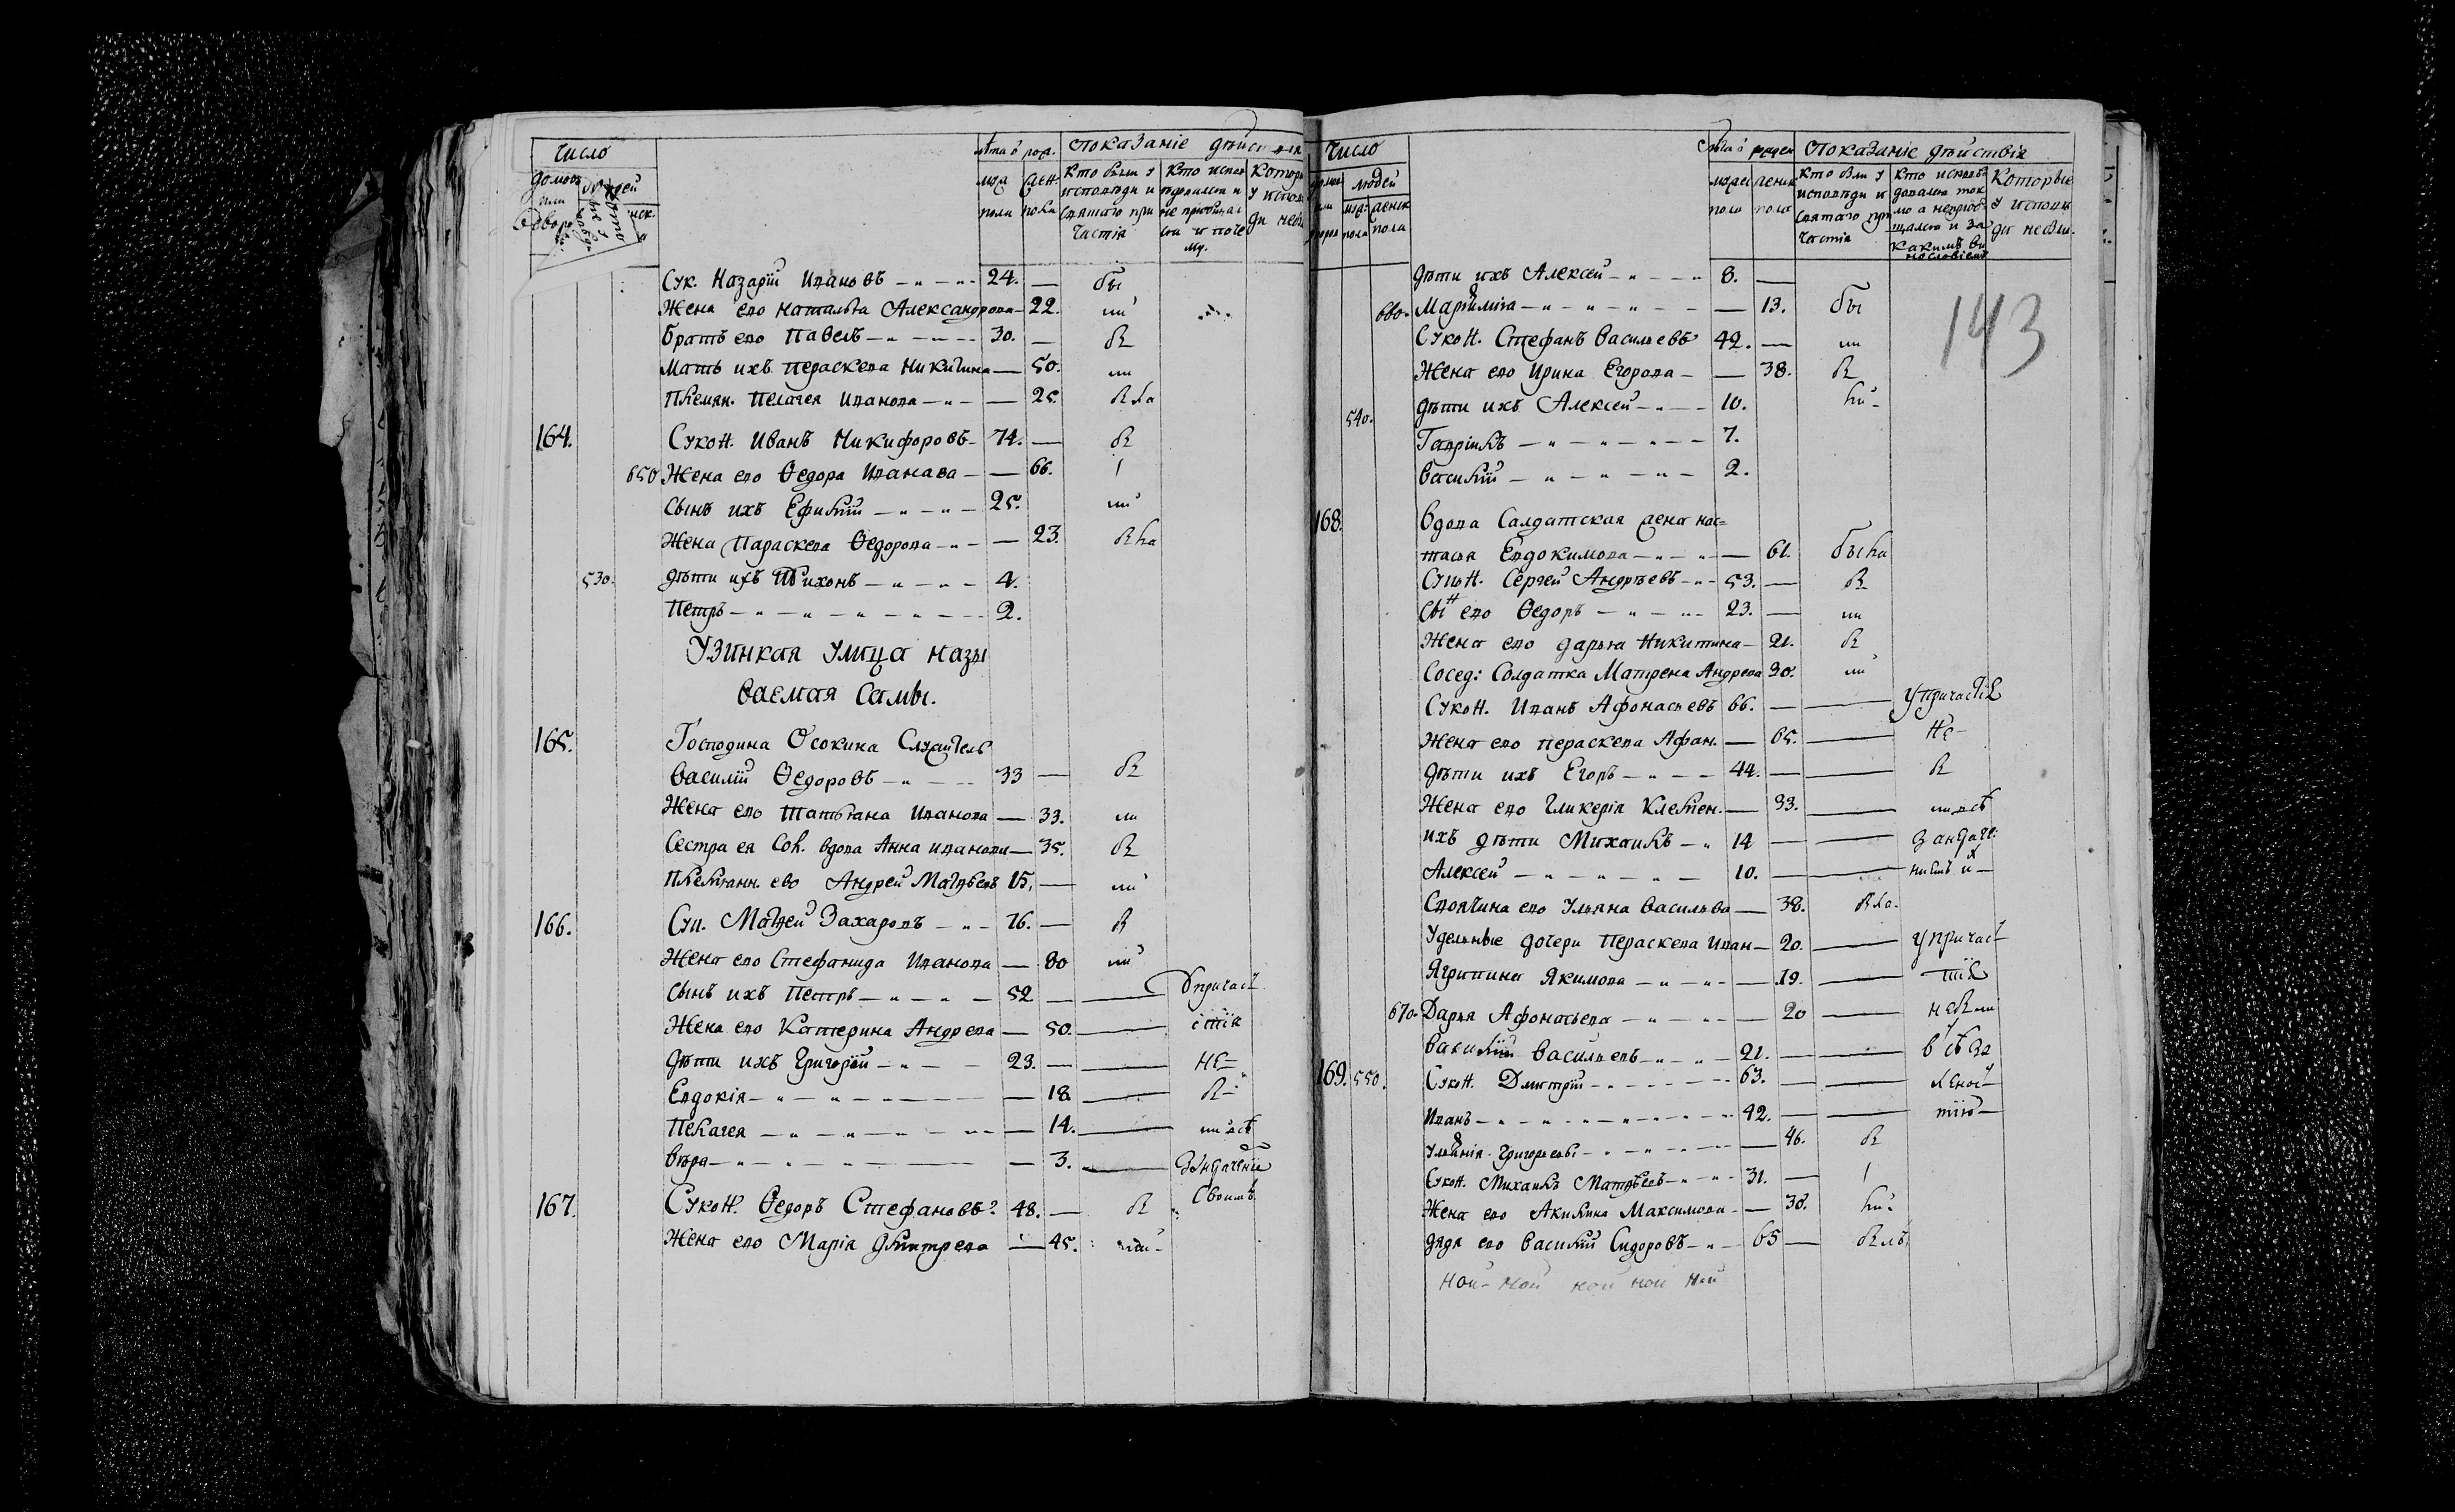 Число
лѣта ѿ рож.
Показаніе дѣйствія
домовъ или
людей
муж. пола
жен. пола
Кто были у исповѣди и святаго причастія
Кто исповѣдовался и не приобщался и почему.
Которые у исповѣди не были
Сук. Назарій Ивановъ 24. — бы
Жена ево Наталья Александрова — 22.
братъ ево Павелъ 30. —
Мать ихъ Параскева Никитина — 50.
Племян. Пелагея Иванова — 25.
164. Сукон. Иванъ Никифоровъ 74. —
650 Жена ево Ѳедора Иванава — 66.
Сынъ ихъ Ефимій 25.
Жена Параскева Ѳедорова — 23.
530. дѣти ихъ Тихонъ 4.
Петръ 2.
Узинкая улица назы
ваемая Самы.
165. Господина Осокина Служитель
Василій Ѳедоровъ 33 —
Жена ево Татьяна Иванова — 33.
Сестра ея Сол. вдова Анна Иванова — 35.
Племянн. ево Андрей Матвѣевъ 15. —
166. Сук. Матвей Захаровъ 76. —
Жена ево Стефанида Иванова — 80
Сынъ ихъ Петръ 52 — — У причас
Жена ево Катерина Андрева — 50. — стія
дѣти ихъ Григорій 23. — — не
Евдокія — 18 —
Пелагея — 14. —
Вѣра — 3. —
своимъ
167. Сукон. Ѳедоръ Стефановъ 48. —
Жена ево Марія Дмитрева — 45.
Число
Лѣта ѿ рожден
Показаніе дѣйствія
людей
муж: пола
женск пола
мужес пола
женск пола
Кто были у исповѣди и святаго причастія
Кто исповѣдовался токмо а не приобщался и за какимъ винословіемъ
Которые у исповѣди не были.
143
дѣти ихъ Алексей 8. —
660. — 13. бы
Сукон. Стефанъ Васильевъ 42. —
Жена ево Ирина Егорова — 38.
540. дѣти ихъ Алексей 10.
Гаврилъ 7.
Василій 2.
168. Вдова Салдатская жена Нас=
тасья Евдокимова — 61. была
Сукон. Сергей Андреевъ 53. —
Сын ево Ѳедоръ 23. —
Жена ево Дарья Никитина 21.
Сосед: Солдатка Матрена Андрева 30.
Сукон. Иванъ Афонасьевъ 66. — — У причастія
Жена ево Параскева Афан. — 65. — Не
дѣти ихъ Егоръ 44. — —
Жена ево Гликерія Клемен. — 33. —
ихъ дѣти Михаилъ 14 — —
Алексей 10. —
Своячина ево Ульяна Васильва — 38.
Удельные дочери Параскева Иван — 20. — У причас
Агрипина Якимова — 19. — тія
670. Дарья Афонасьева — 20 —
Василій Васильевъ 21. — —
169. 550. Сукон. Дмитрій 63. — —
Иванъ 42. — — тію
— 46.
Сукон. Михаилъ Матвѣевъ 31. —
Жена ево Акилина Максимова — 38.
дядя ево Василій Сидоровъ 65 —
Ной Ной ной ной Ной